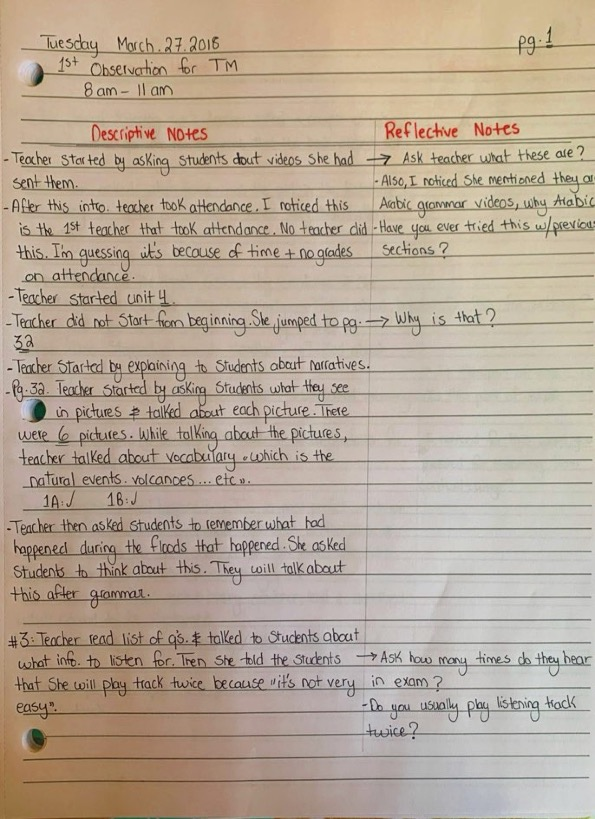 Tuesday March.27.2018
pg.1
1st Observation for TM
8am - 11am
Descriptive Notes
Reflective Notes
- Teacher started by asking students about videos she had
sent them.
- After this intro. teacher took attendance. I noticed this
is the 1st teacher that took attendance. No teacher did
this. I'm guessing it's because of time + no grades
on attendance.
- Teacher started unit 4.
- Teacher did not start from beginning. She jumped to pg.
32
- Teacher started by explaining to students about narratives.
- Pg.32. Teacher started by asking students what they see
in pictures & talked about each picture. There
were 6 pictures. While talking about the pictures,
teacher talked about vocabulary "which is the
natural events. volcanoes...etc".
1A:✓ 1B:✓
- Teacher then asked students to remember what had
happened during the floods that happened. She asked
students to think about this. They will talk about
this after grammar.
#3: Teacher read list of q's. & talked to students about
what info. to listen for. Then she told the students
that she will play track twice because "it's not very
easy".
→ Ask teacher what these are?
- Also, I noticed she mentioned they a
Arabic grammar videos, why Arabic
- Have you ever tried this w/previous
sections?
→ Why is that?
→ Ask how many times do they hear
in exam?
- Do you usually play listening track
twice?